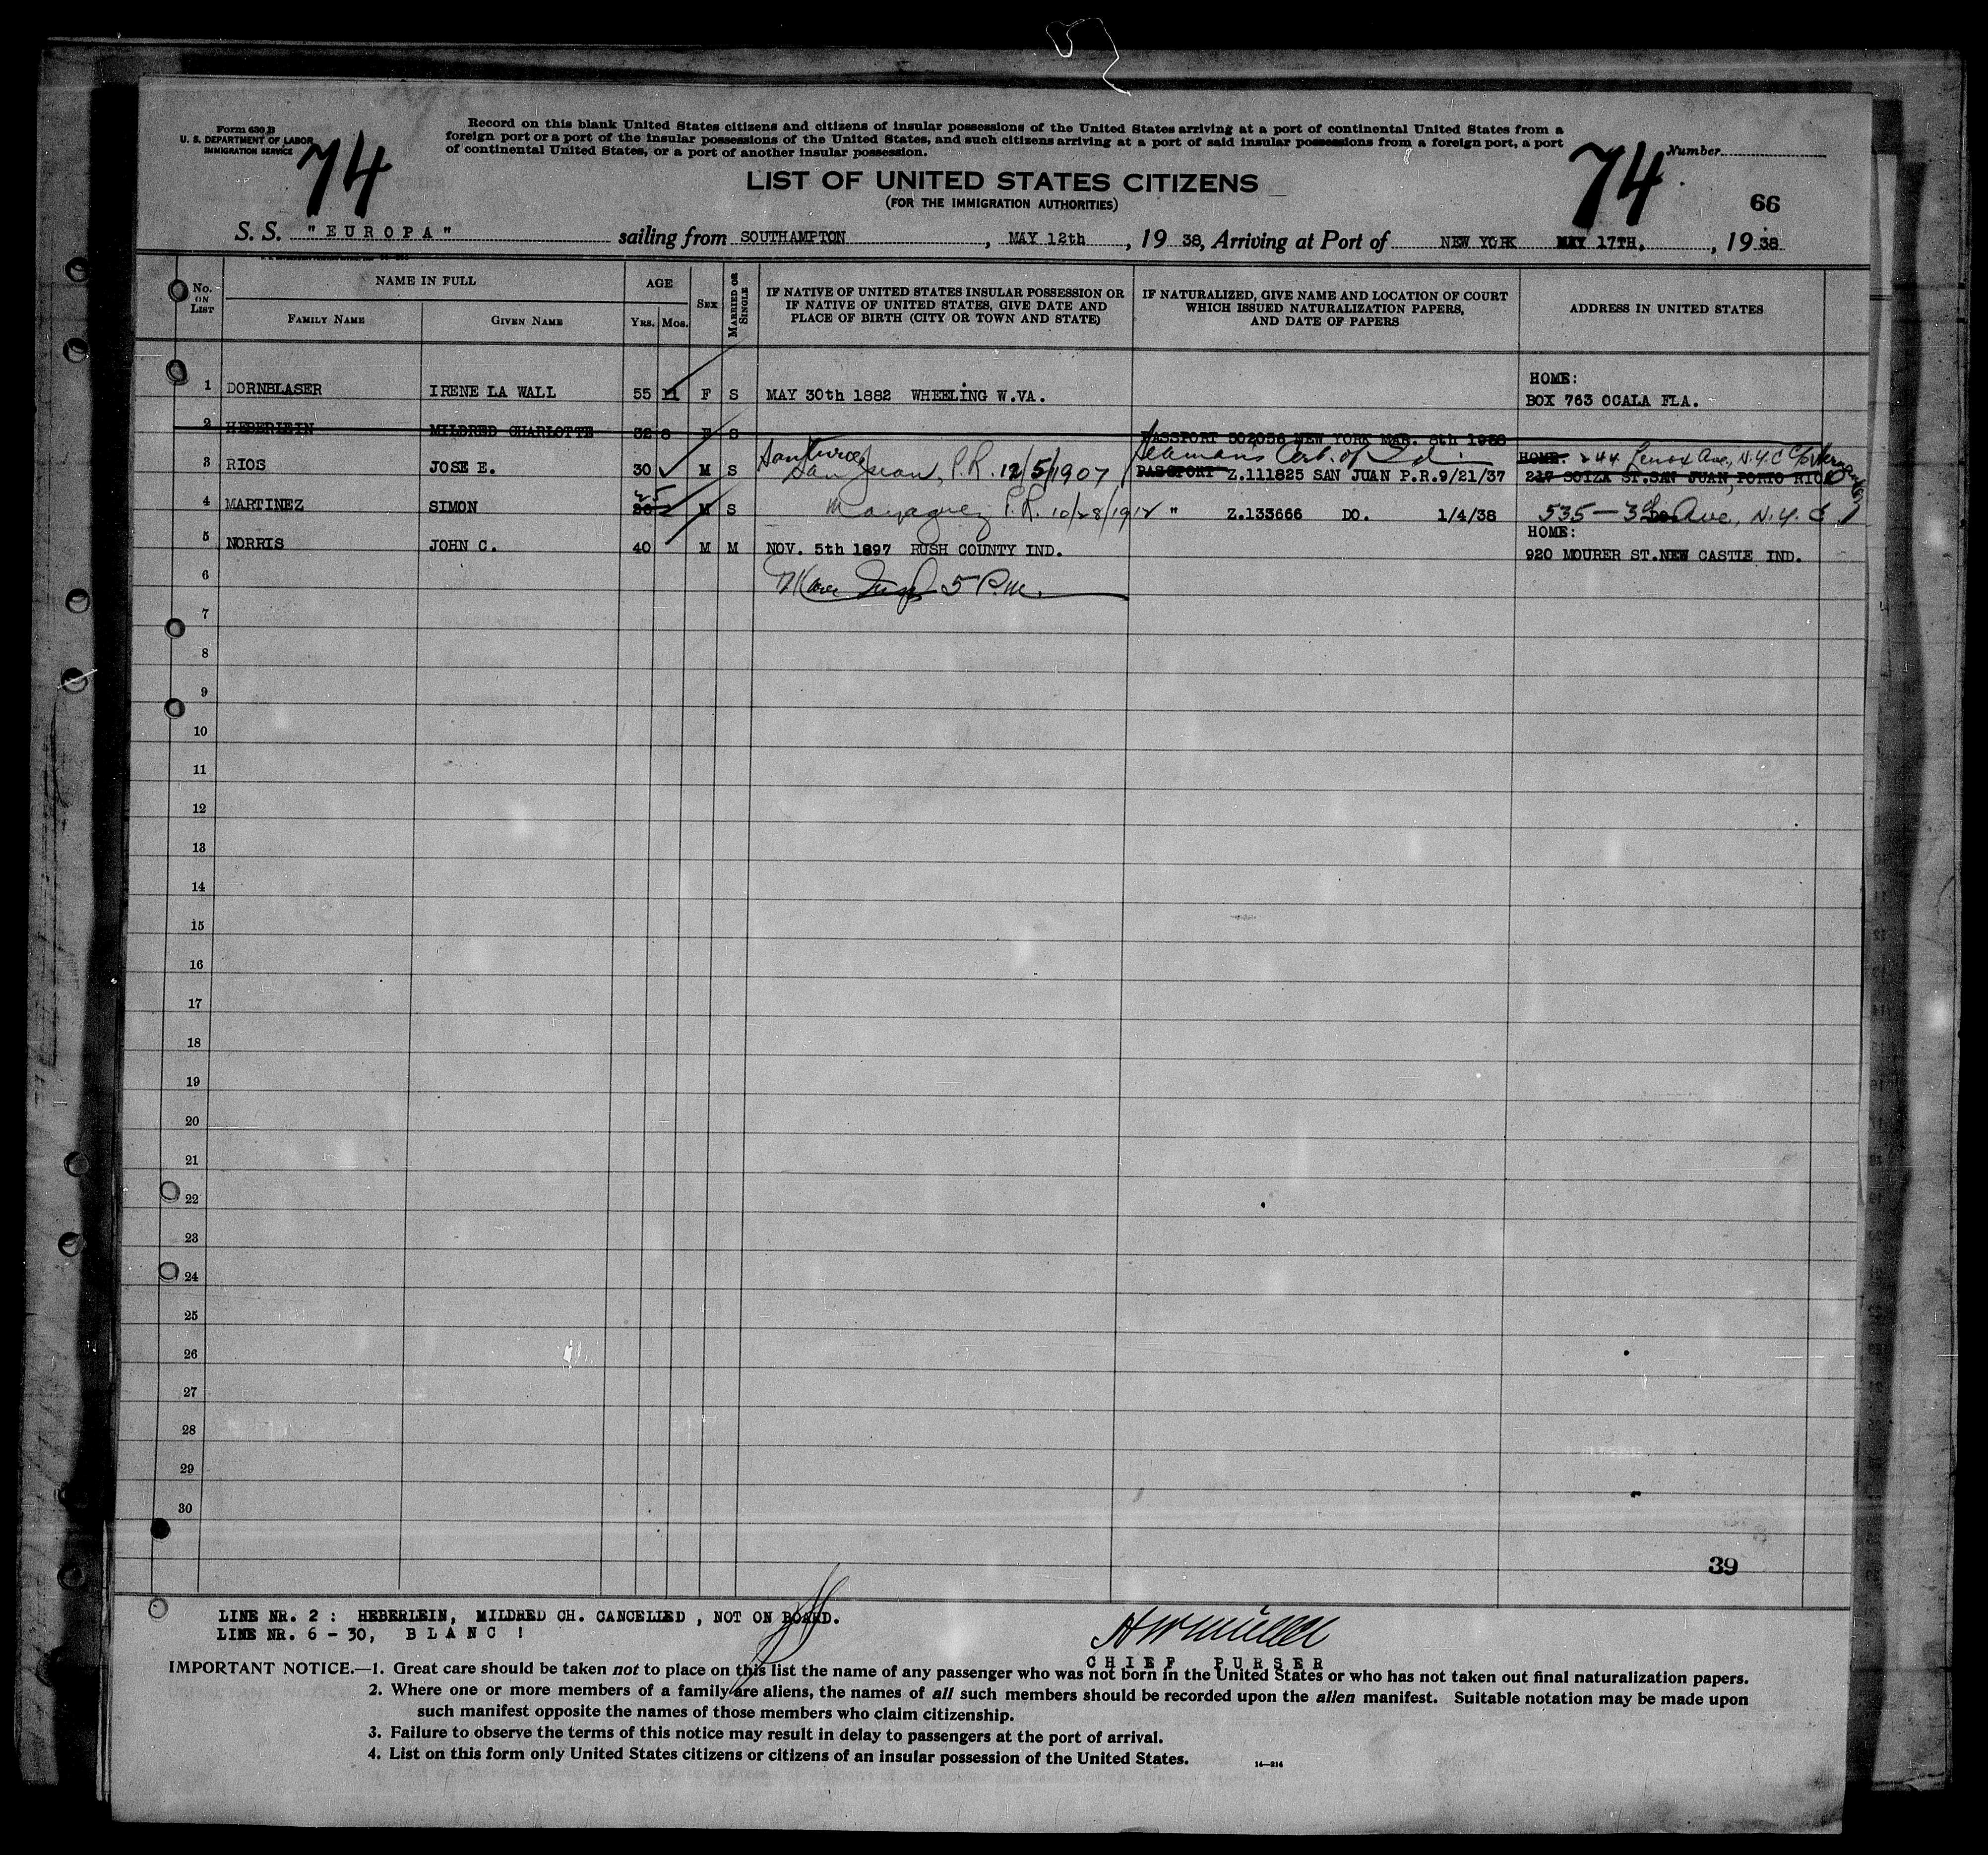 Form 630 B
U. S. DEPARTMENT OF LABOR
IMMIGRATION SERVICE
74
Record on this blank United States citizens and citizens of insular possessions of the United States arriving at a port of continental United States from a
foreign port or a port of the insular possessions of the United States, and such citizens arriving at a port of said insular possessions from a foreign port, a port
of continental United States, or a port of another insular possession.
Number
74
66
LIST OF UNITED STATES CITIZENS
(FOR THE IMMIGRATION AUTHORITIES)
S. S. "EUROPA" sailing from SOUTHAMPTON, MAY 12th, 19 38, Arriving at Port of NEW YORK MAY 17TH., 19 38
No. ON LIST
NAME IN FULL
FAMILY NAME
GIVEN NAME
AGE
YRS. MOS.
SEX
MARRIED OR SINGLE
IF NATIVE OF UNITED STATES INSULAR POSSESSION OR
IF NATIVE OF UNITED STATES, GIVE DATE AND
PLACE OF BIRTH (CITY OR TOWN AND STATE)
IF NATURALIZED, GIVE NAME AND LOCATION OF COURT
WHICH ISSUED NATURALIZATION PAPERS,
AND DATE OF PAPERS
ADDRESS IN UNITED STATES
HOME:
1 DORNBLASER IRENE LA WALL 55 11 F S MAY 30th 1882 WHEELING W.VA. BOX 763 OCALA FLA.
2 HEBERLEIN MILDRED CHARLOTTE 32 8 F S PASSPORT 502056 NEW YORK MAR. 8th 1938
Santurce Seamans Cert. of Id. HOME: 244 Lenox Ave., N.Y.C
3 RIOS JOSE E. 30 M S San Juan, P.R. 12/5/1907 PASSPORT Z.111825 SAN JUAN P.R.9/21/37 217 SOIZA ST.SAN JUAN, PORTO RICO
25
4 MARTINEZ SIMON 26 M S Mayaguez P.R. 10/28/1912 " Z.133666 DO. 1/4/38 535-3rd Ave., N.Y.C
HOME:
5 NORRIS JOHN C. 40 M M NOV. 5th 1897 RUSH COUNTY IND. 920 MOURER ST.NEW CASTLE IND.
6 5 P.M.
7
8
9
10
11
12
13
14
15
16
17
18
19
20
21
22
23
24
25
26
27
28
29
30
39
LINE NR. 2 : HEBERLEIN, MILDRED CH. CANCELLED , NOT ON BOARD.
LINE NR. 6 - 30, BLANC !
CHIEF PURSER
IMPORTANT NOTICE.—1. Great care should be taken not to place on this list the name of any passenger who was not born in the United States or who has not taken out final naturalization papers.
2. Where one or more members of a family are aliens, the names of all such members should be recorded upon the alien manifest. Suitable notation may be made upon
such manifest opposite the names of those members who claim citizenship.
3. Failure to observe the terms of this notice may result in delay to passengers at the port of arrival.
4. List on this form only United States citizens or citizens of an insular possession of the United States.
14—214